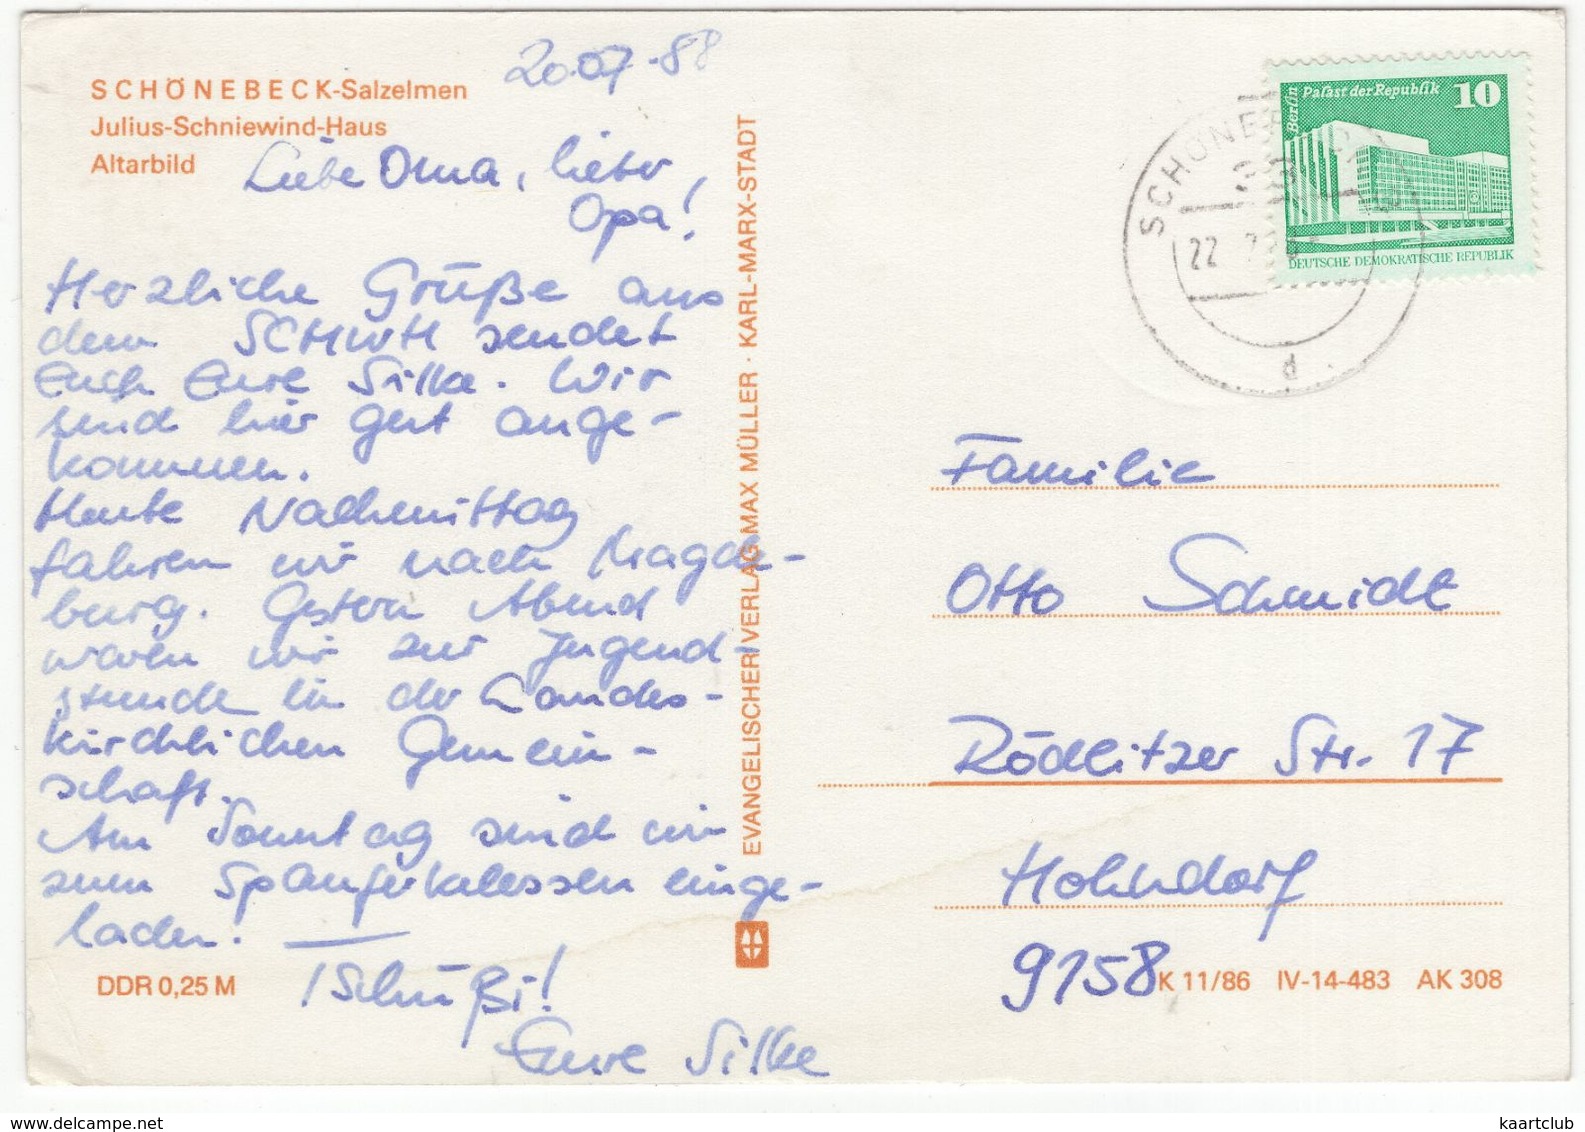 20.07.88
SCHÖNEBECK-Salzelmen
Julius-Schniewind-Haus
Altarbild
Liebe Oma, lieber
Opa!
Herzliche Grüße aus
dem SCHWH sendet
Euch Eure Silke. Wir
sind hier gut ange-
kommen.
Heute Nachmittag
fahren wir nach Magde-
burg. Gestern Abend
waren wir zur Jugend-
stunde in der Landes-
kirchlichen Gemein-
schaft.
Am Sonntag sind wir
zum Spanferkelessen einge-
laden!
Tschüßi!
Eure Silke
DDR 0,25 M
EVANGELISCHER VERLAG MAX MÜLLER · KARL-MARX-STADT
Berlin Palast der Republik 10
DEUTSCHE DEMOKRATISCHE REPUBLIK
SCHÖNEB
22. 7.
d
Familie
Otto Schmidt
Rödlitzer Str. 17
Hohndorf
9158
K 11/86 IV-14-483 AK 308
kaartclub